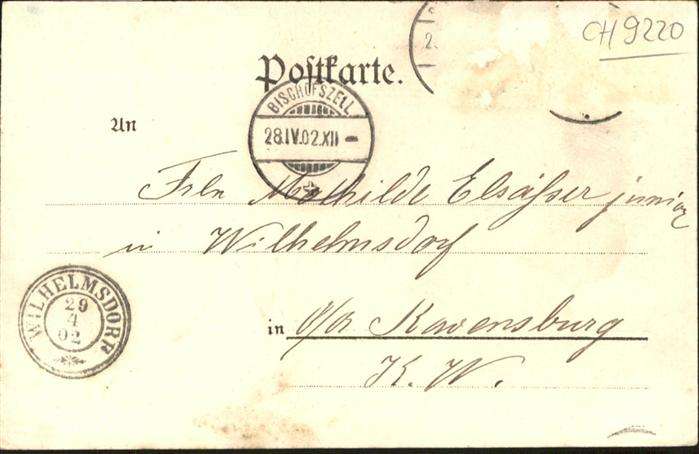 CH 9220
2.
Postkarte.
BISCHOFSZELL
28.IV.02.XII –
An
Frln Mathilde Elsäßer junior
in Wilhelmsdorf
WILHELMSDORF
29
4
02
in o/a Ravensburg
K. W.